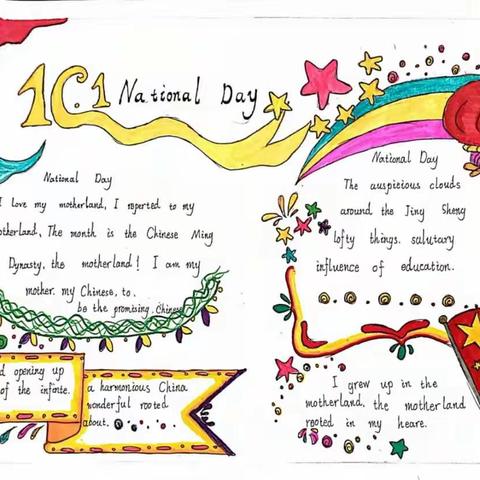 10.1 National Day
National Day
I love my motherland, I reperted to my
motherland, The month is the Chinese Ming
Dynasty, the motherland! I am my
mother. my Chinese, to.
be the promising. Chinese
d opening up
of the infinte.
a harmonious China
wonderful rooted
about.
National Day
The auspicious clouds
around the Jing Sheng
lofty things. salutary
influence of education.
I grew up in the
motherland, the motherland
rooted in my heare.